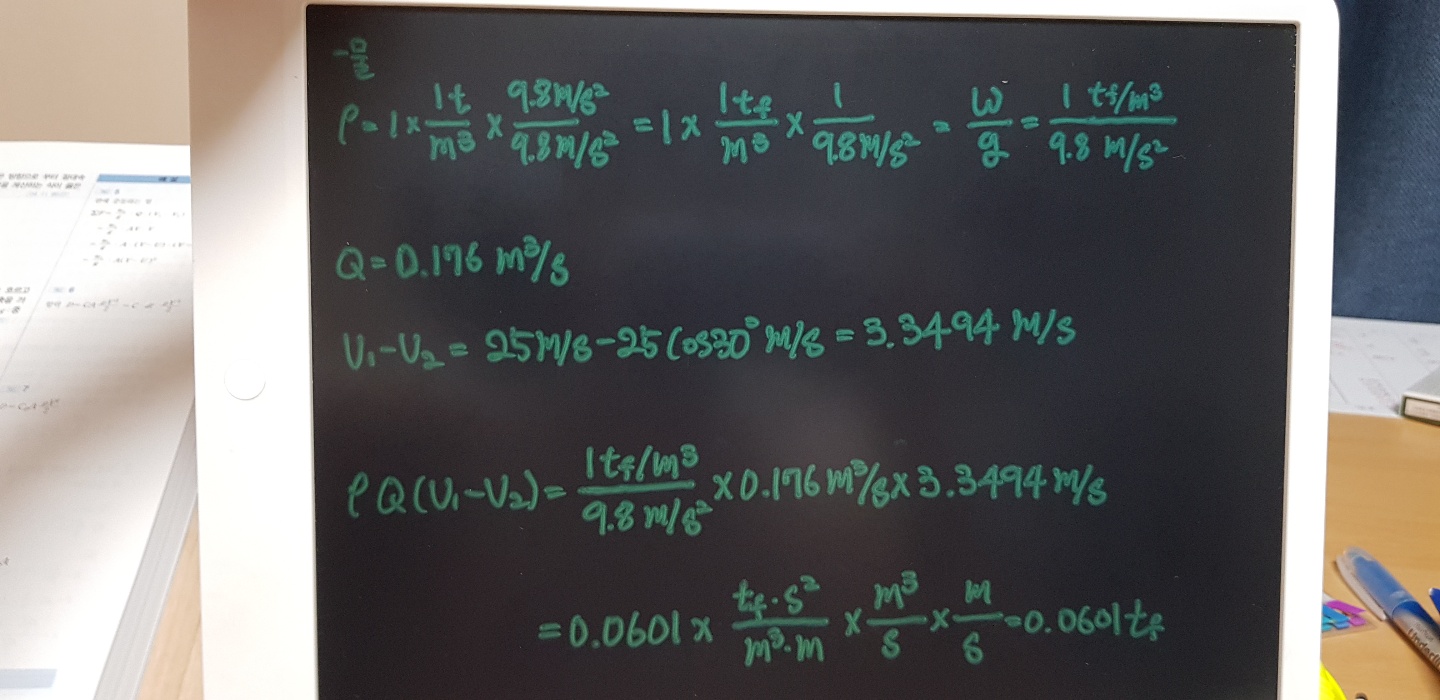 -물
ρ = 1 × 1t/m³ × 9.8m/s²/9.8m/s² = 1 × 1tf/m³ × 1/9.8m/s² = w/g = 1 tf/m³/9.8 m/s²
Q = 0.176 m³/s
V₁-V₂ = 25m/s - 25cos30° m/s = 3.3494 m/s
ρQ(V₁-V₂) = 1tf/m³/9.8 m/s² × 0.176 m³/s × 3.3494 m/s
= 0.0601 × tf·s²/m³·m × m³/s × m/s = 0.0601 tf